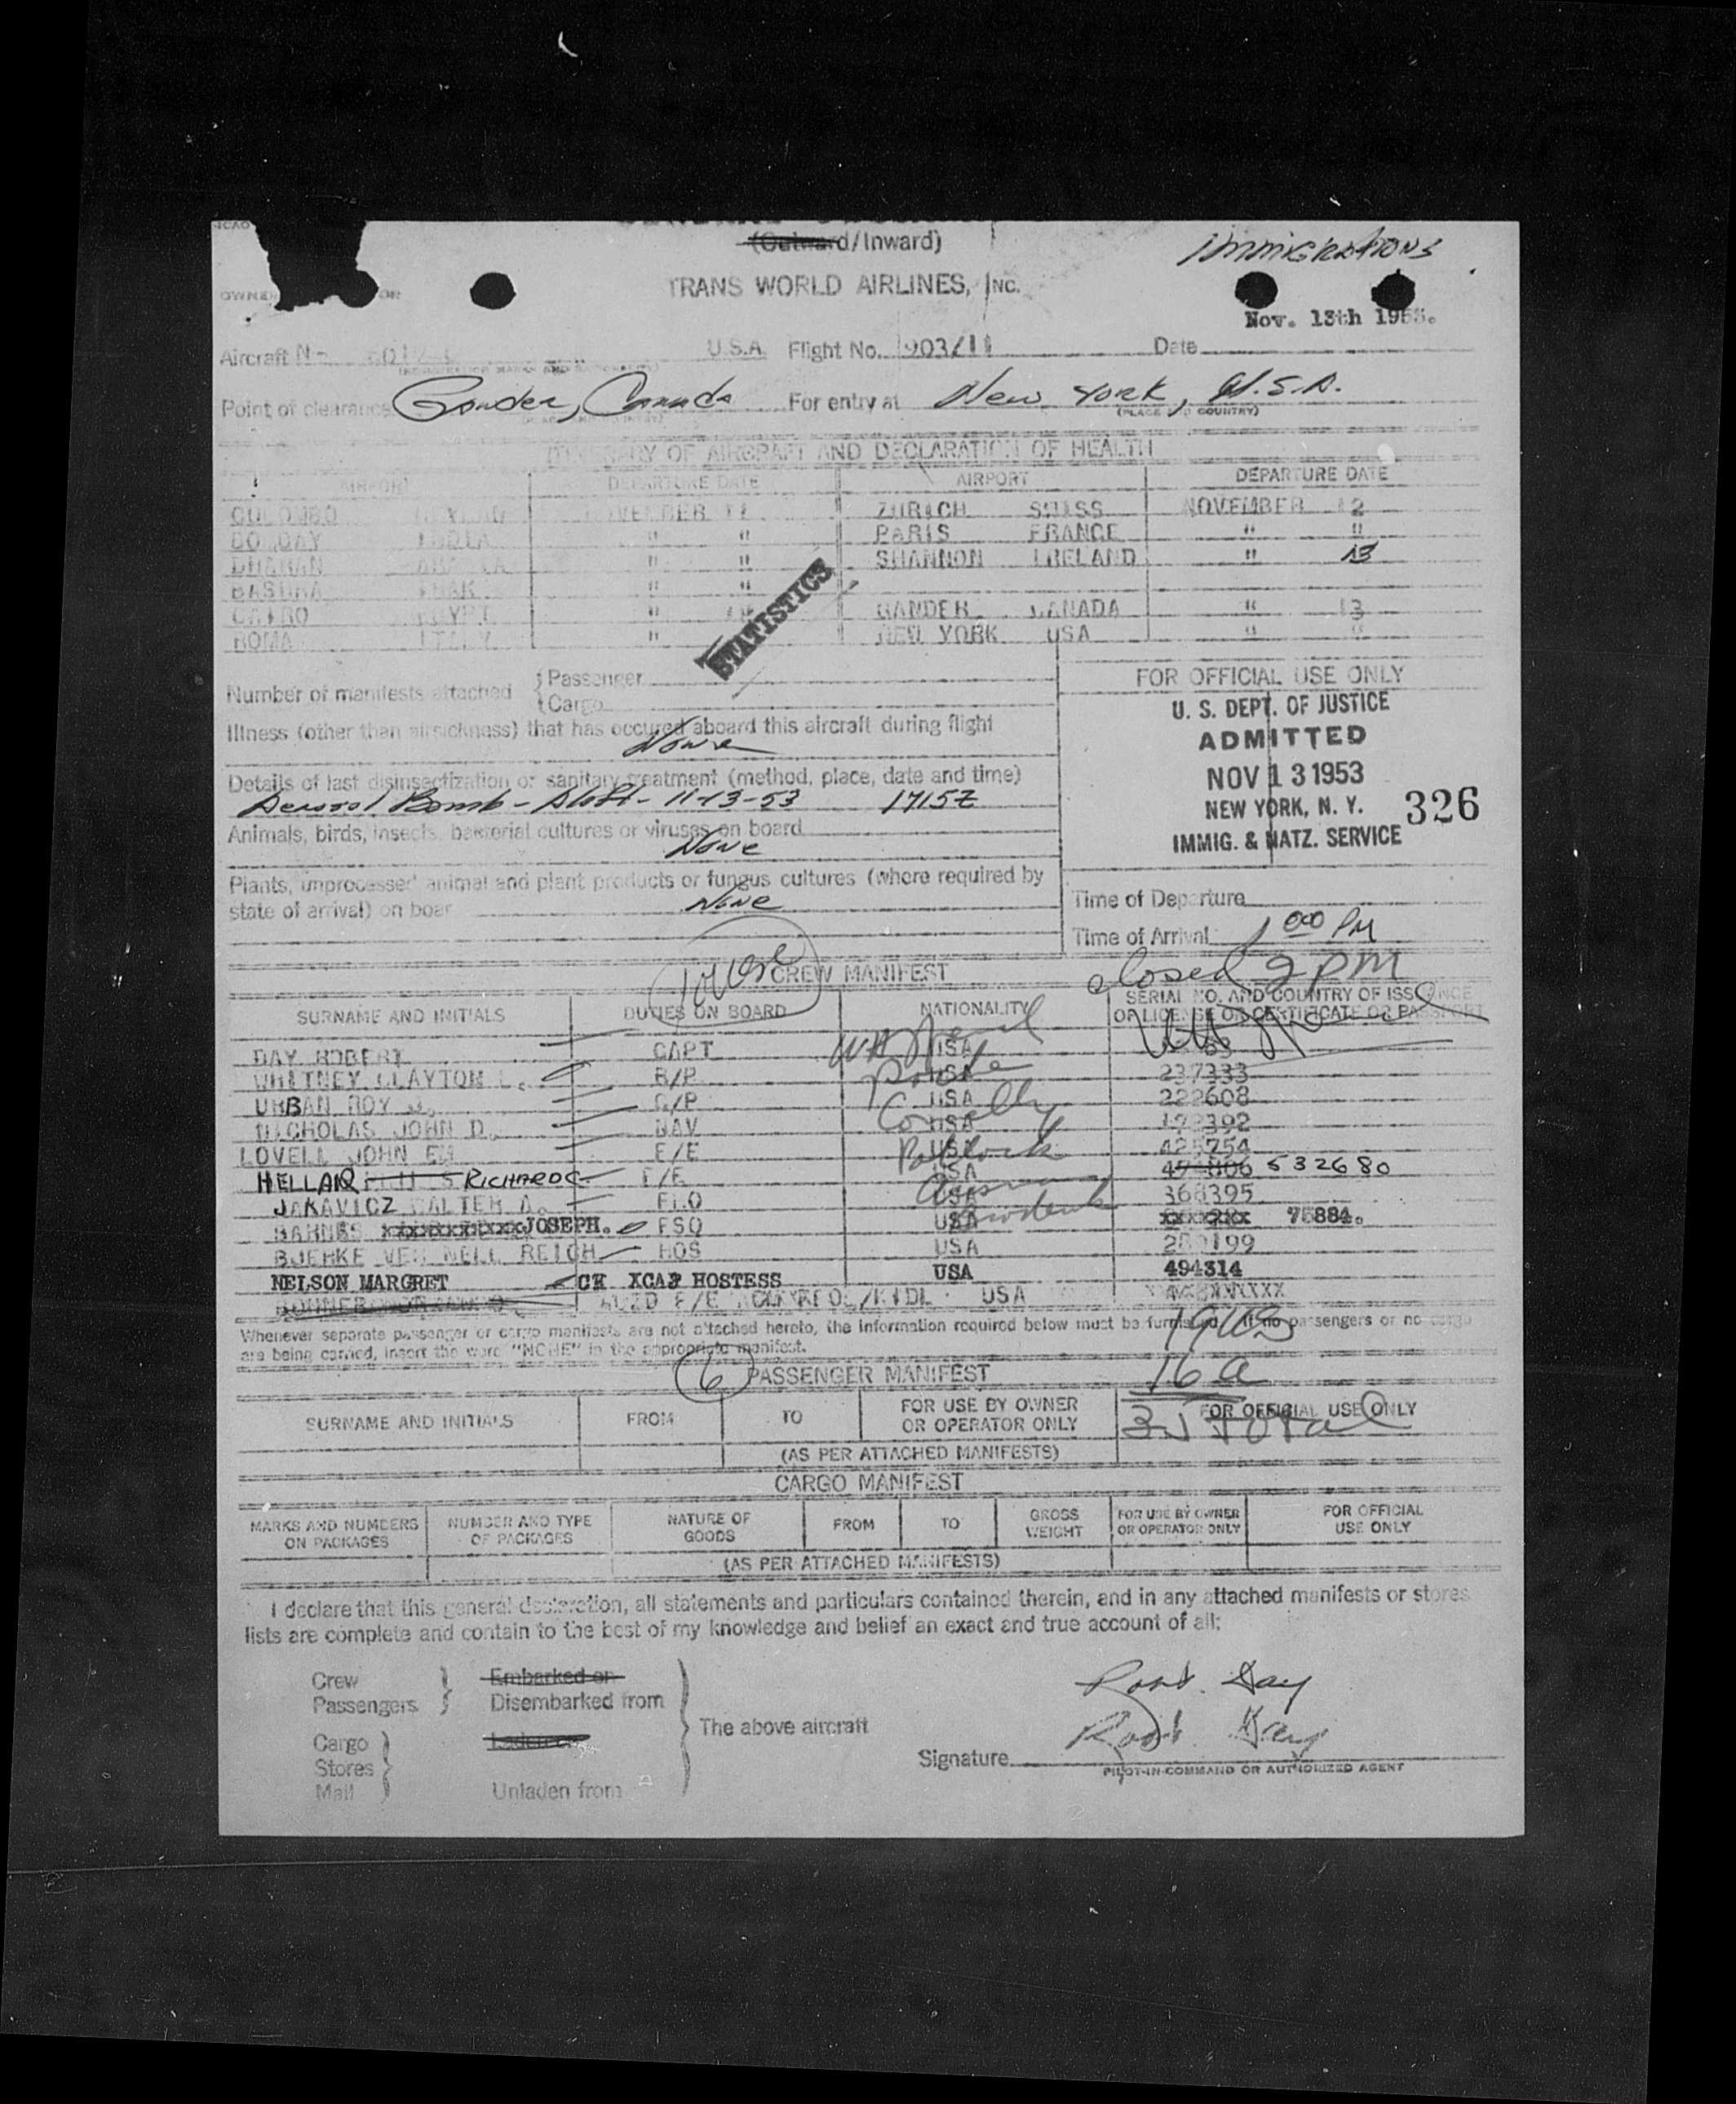 ICAO
(Outward/Inward)
IMMIGRATIONS
TRANS WORLD AIRLINES, INC.
Nov. 13th 1953.
Aircraft N- U.S.A. Flight No. 903/11 Date
Point of clearance Gander, Canada For entry at New York, U.S.A.
(PLACE AND COUNTRY)
ITINERARY OF AIRCRAFT AND DECLARATION OF HEALTH
AIRPORT DEPARTURE DATE AIRPORT DEPARTURE DATE
COLOMBO CEYLON NOVEMBER 11 ZURICH SUISS NOVEMBER 12
BOMBAY INDIA " " PARIS FRANCE " "
DHARAN ARABIA " " SHANNON IRELAND " 13
BASHRA IRAK " "
CAIRO EGYPT " GANDER CANADA " 13
ROMA ITALY " NEW YORK USA " "
STATISTICS
Number of manifests attached { Passenger
Cargo
FOR OFFICIAL USE ONLY
U. S. DEPT. OF JUSTICE
ADMITTED
NOV 13 1953
NEW YORK, N. Y. 326
IMMIG. & NATZ. SERVICE
Illness (other than airsickness) that has occured aboard this aircraft during flight
None
Details of last disinsectization or sanitary treatment (method, place, date and time)
Aerosol Bomb - Aloft - 11-13-53 1715Z
Animals, birds, insects, bacterial cultures or viruses on board
None
Plants, unprocessed animal and plant products or fungus cultures (where required by
state of arrival) on boar None
Time of Departure
Time of Arrival 1 00 PM
closed 2 PM
CREW MANIFEST
SURNAME AND INITIALS DUTIES ON BOARD NATIONALITY SERIAL NO. AND COUNTRY OF ISSUANCE
OF LICENSE OR CERTIFICATE OR PASSPORT
DAY ROBERT CAPT USA
WHITNEY CLAYTON L. R/P USA 237333
URBAN ROY J. C/P USA 222608
NICHOLAS JOHN D. NAV USA 172392
LOVELL JOHN EM F/E USA 425754
HELLAR RICHARD C F/E USA 474806 532680
JAKAVICZ WALTER A. FLO USA 368395
BARNES xxxxxxxxxxx JOSEPH. FSO USA xxxxxxx 75884.
BJERKE VER NELL REICH HOS USA 289199
NELSON MARGRET CK XCAR HOSTESS USA 494314
USA
Whenever separate passenger or cargo manifests are not attached hereto, the information required below must be furnished. If no passengers or no cargo
are being carried, insert the word "NONE" in the appropriate manifest.
(6) PASSENGER MANIFEST
16 a
SURNAME AND INITIALS FROM TO FOR USE BY OWNER
OR OPERATOR ONLY FOR OFFICIAL USE ONLY
Total
(AS PER ATTACHED MANIFESTS)
CARGO MANIFEST
MARKS AND NUMBERS
ON PACKAGES NUMBER AND TYPE
OF PACKAGES NATURE OF
GOODS FROM TO GROSS
WEIGHT FOR USE BY OWNER
OR OPERATOR ONLY FOR OFFICIAL
USE ONLY
(AS PER ATTACHED MANIFESTS)
I declare that this general declaration, all statements and particulars contained therein, and in any attached manifests or stores
lists are complete and contain to the best of my knowledge and belief an exact and true account of all:
Crew
Passengers } Embarked on
Disembarked from
Cargo
Stores
Mail } Laden on
Unladen from
The above aircraft
Robt. Day
Signature Robt. Day
PILOT-IN-COMMAND OR AUTHORIZED AGENT